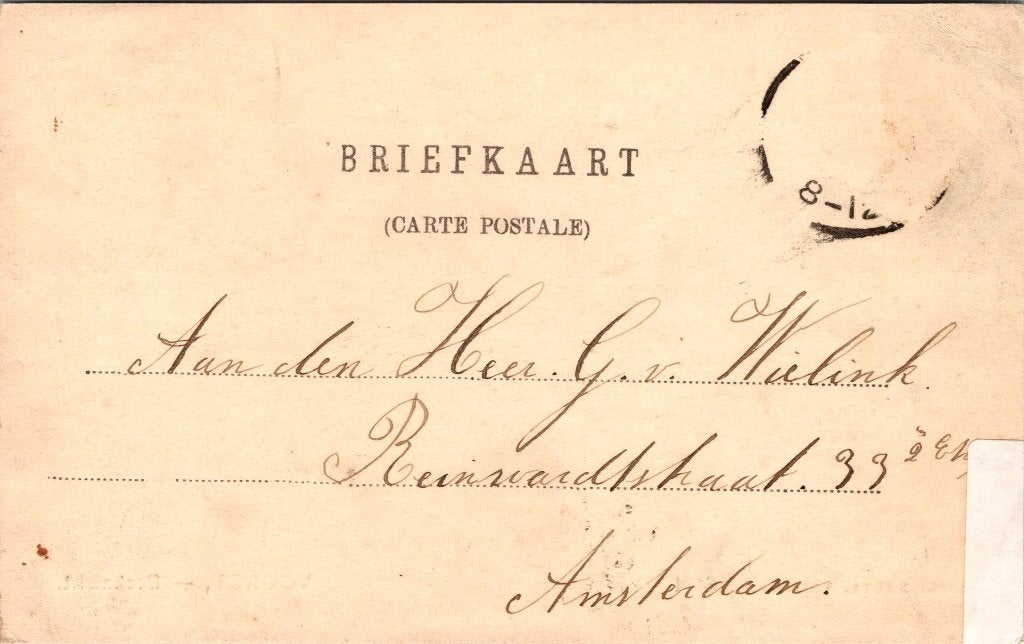 BRIEFKAART
(CARTE POSTALE)
8-12
Aan den Heer. G. v. Wielink.
Reinwardtstraat. 33
Amsterdam.